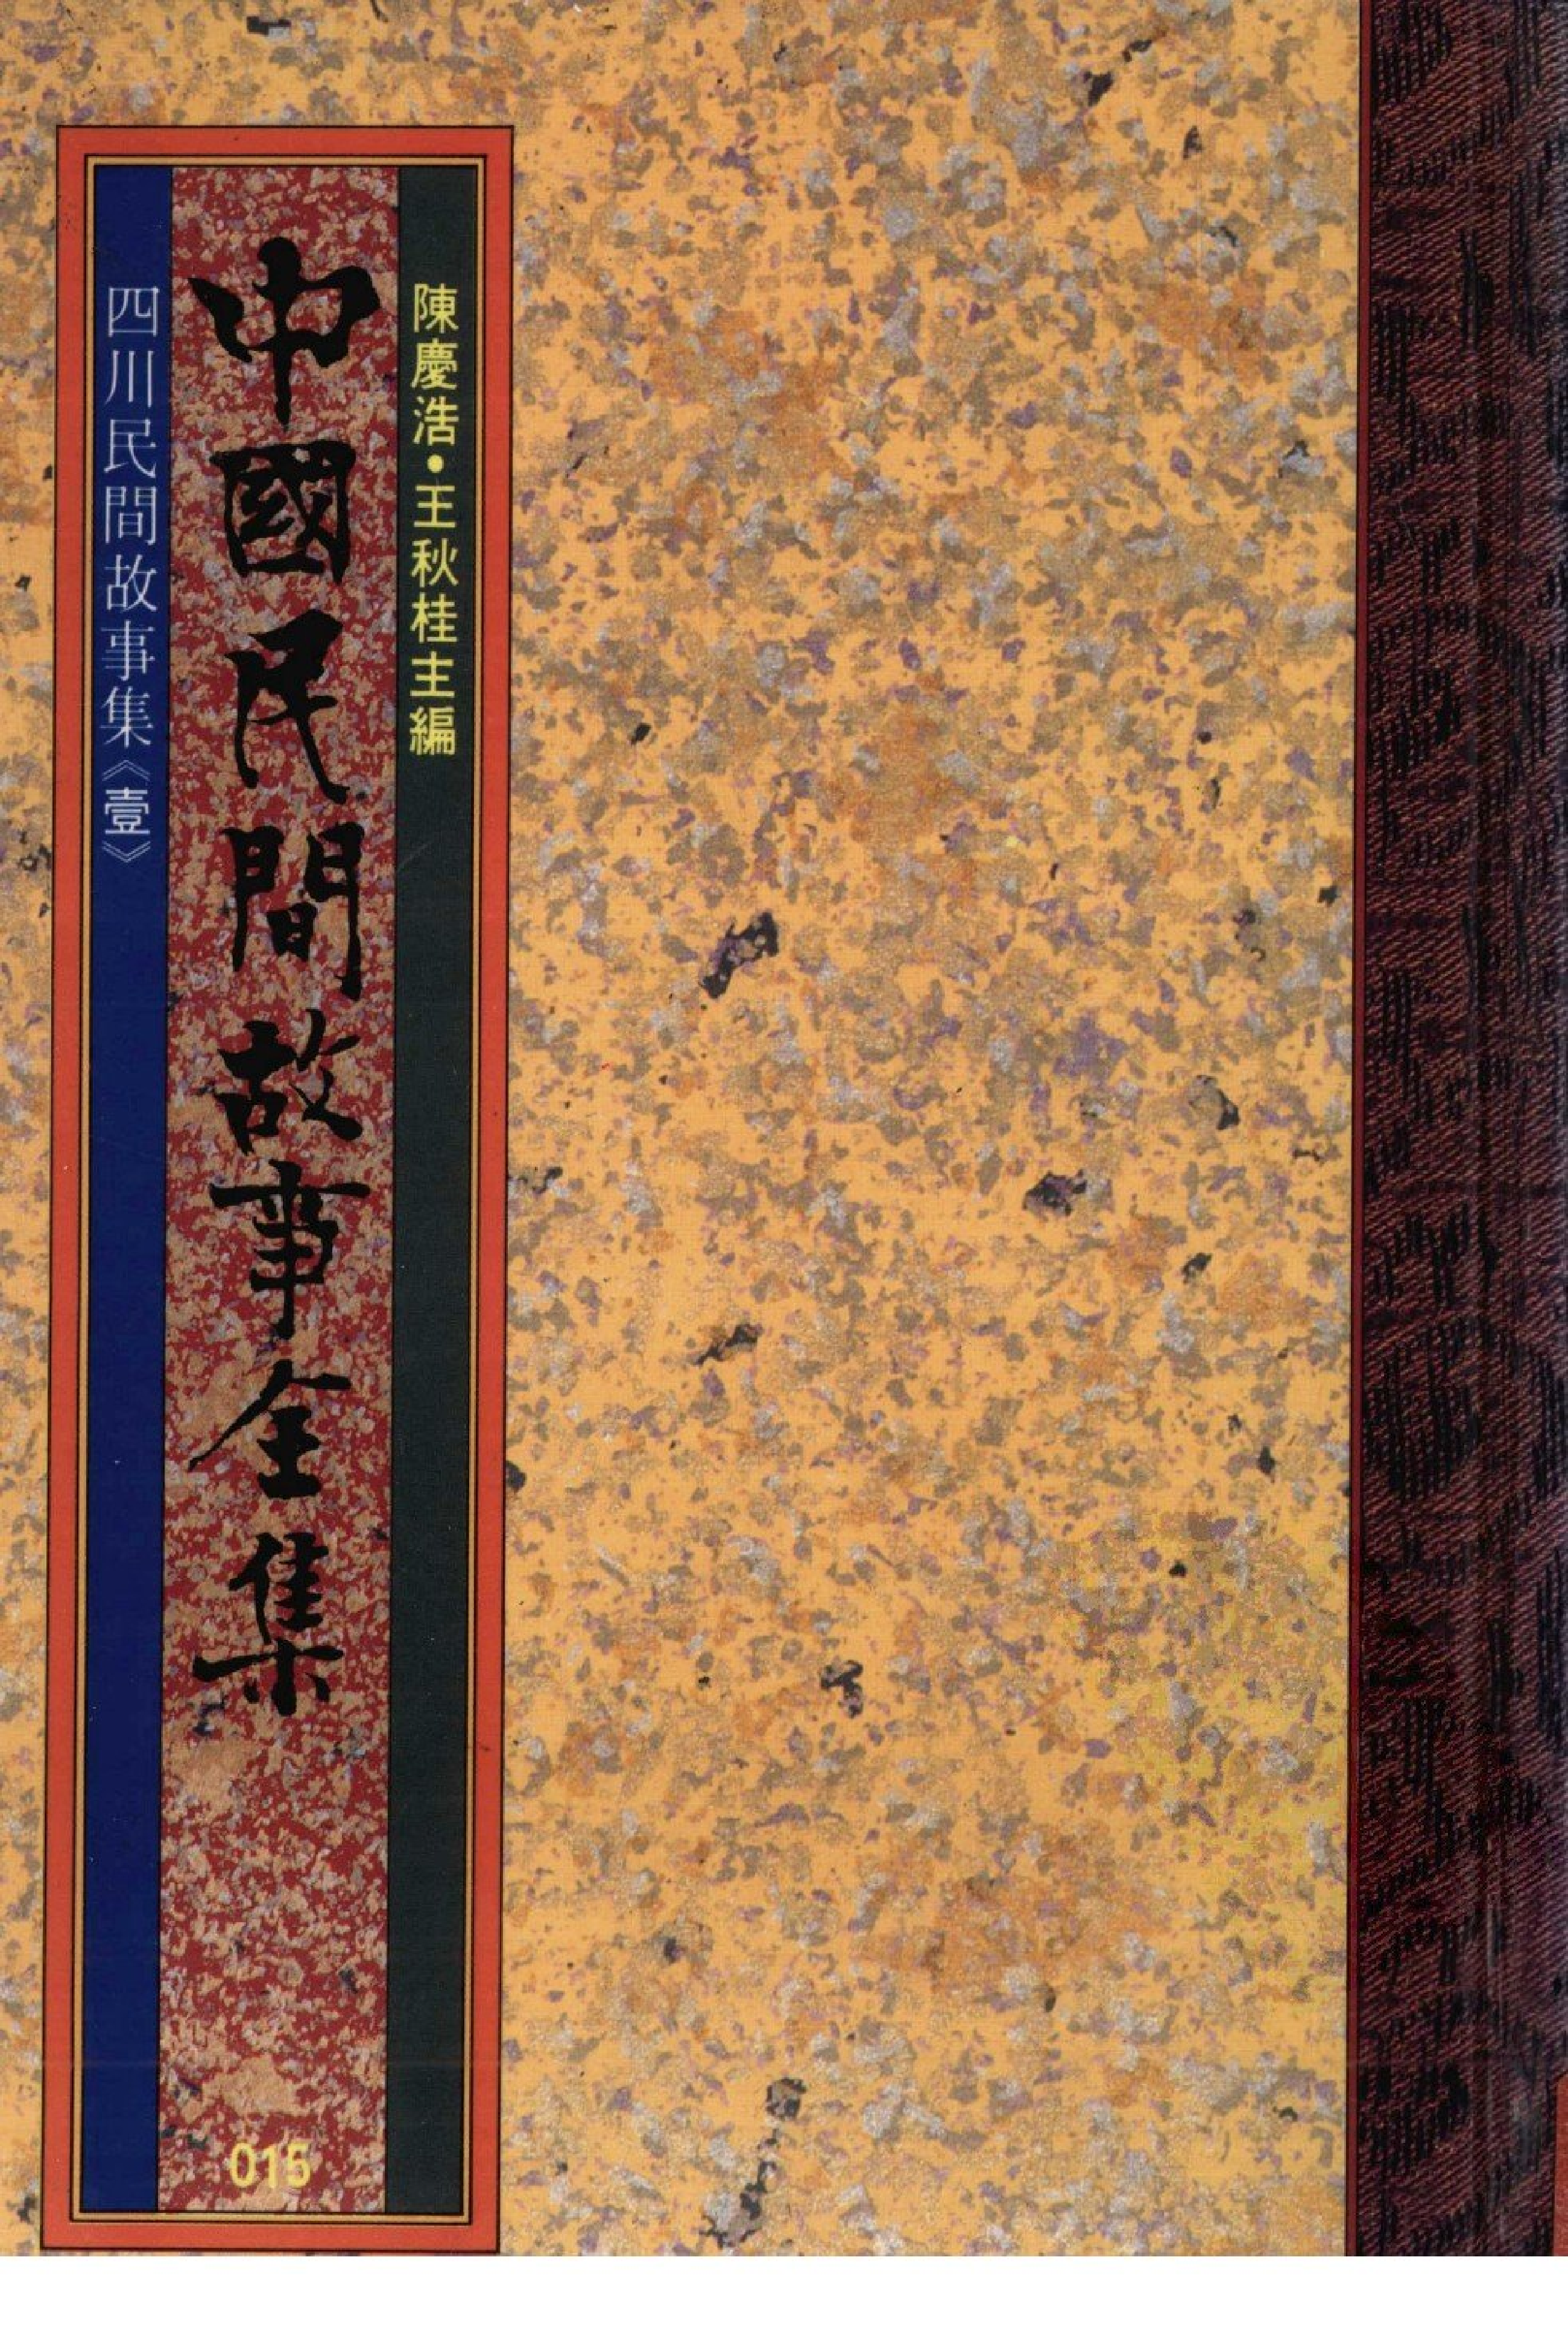 陳慶浩•王秋桂主編
中國民間故事全集
四川民間故事集《壹》
015